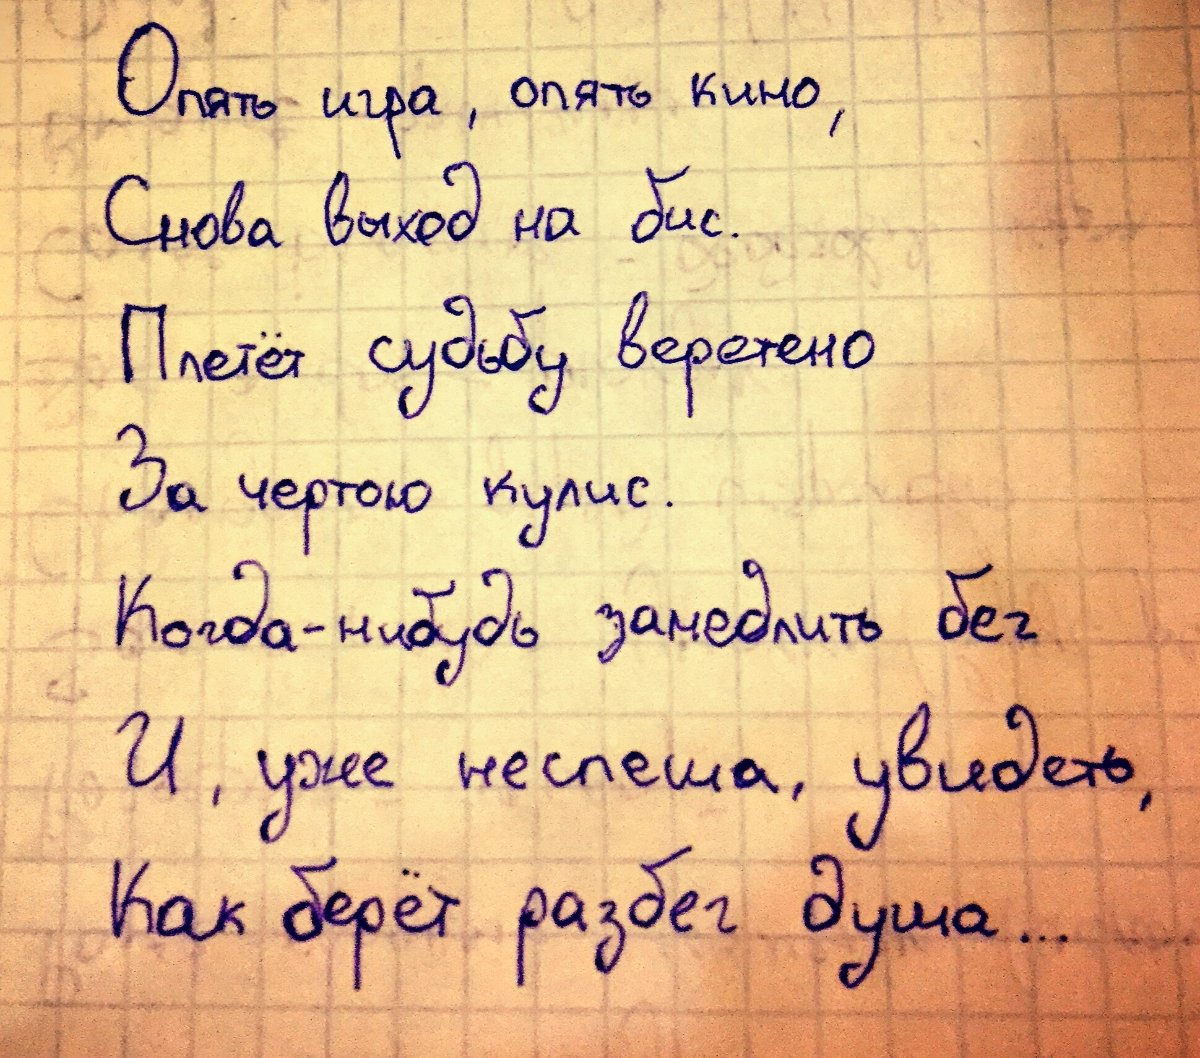 Опять игра, опять кино,
Снова выход на бис.
Плетёт судьбу веретено
За чертою кулис.
Когда-нибудь замедлить бег
И, уже неспеша, увидеть,
Как берёт разбег душа...